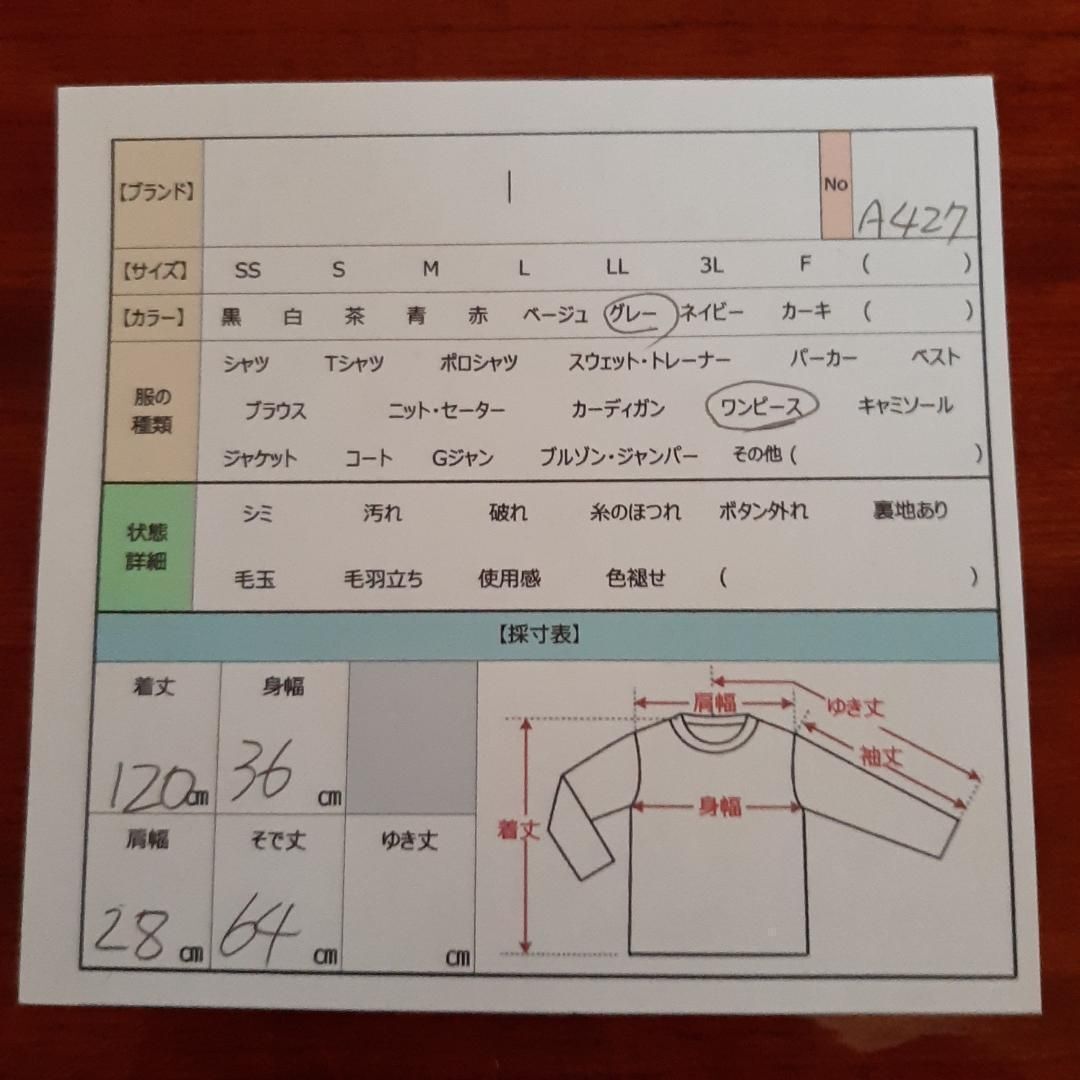 【ブランド】 | No A427
【サイズ】 SS S M L LL 3L F ( )
【カラー】 黒 白 茶 青 赤 ベージュ グレー ネイビー カーキ ( )
服の種類
シャツ Tシャツ ポロシャツ スウェット・トレーナー パーカー ベスト
ブラウス ニット・セーター カーディガン ワンピース キャミソール
ジャケット コート Gジャン ブルゾン・ジャンパー その他 ( )
状態詳細
シミ 汚れ 破れ 糸のほつれ ボタン外れ 裏地あり
毛玉 毛羽立ち 使用感 色褪せ ( )
【採寸表】
着丈 身幅
120cm 36cm
肩幅 そで丈 ゆき丈
28cm 64cm cm
肩幅 ゆき丈
袖丈
身幅
着丈